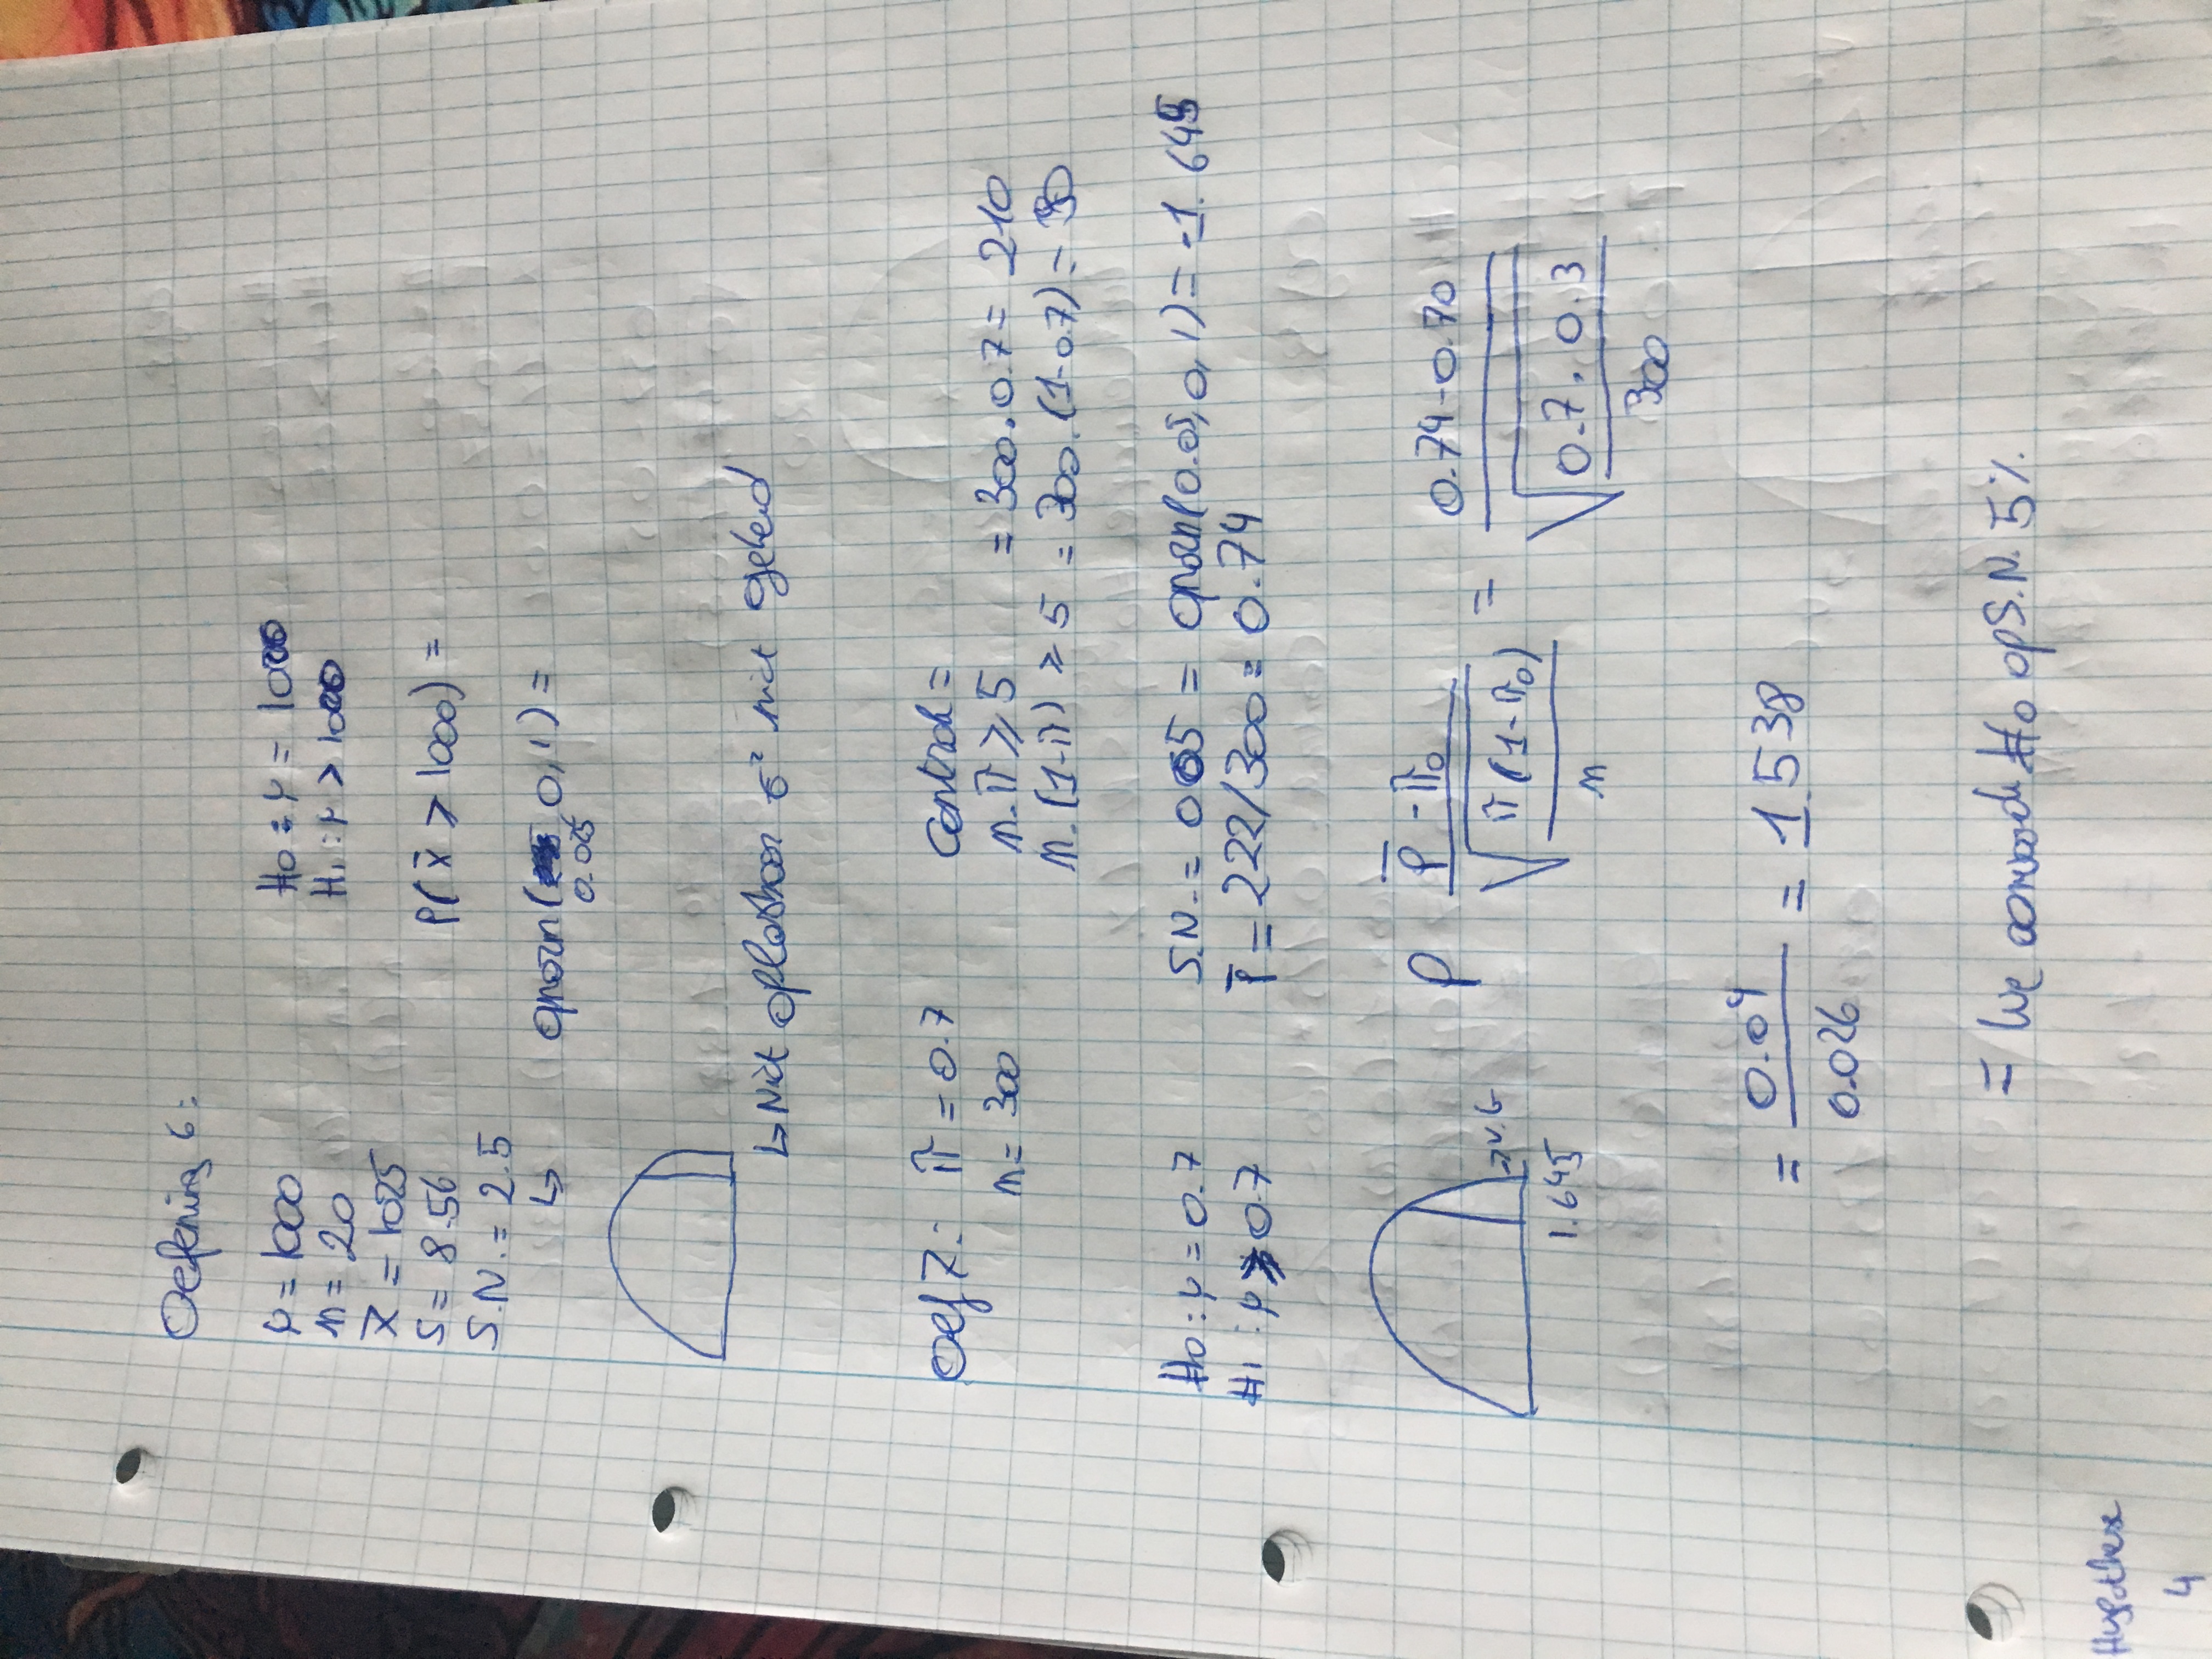 Oefening 6:
μ = 1000
n = 20
x̄ = 1025
S = 8.56
S.N. = 2.5
↳
H0 : μ = 1000
H1 : μ > 1000
P( x̄ > 1000) =
qnorm( 0, 1) =
0.025
↳ Niet oplosbaar σ² niet gekend
Oef 7: π = 0.7
n = 300
Controle =
n.π ≥ 5 = 300.0.7 = 210
n.(1-π) ≥ 5 = 300.(1-0.7) = 90
H0 : μ = 0.7
H1 : μ > 0.7
S.N. = 0.05 = qnorm(0.05, 0, 1) = -1.645
p̄ = 222/300 = 0.74
→ V.G
1.645
P p̄ - π0 / √ π(1-π0) / n = 0.74-0.70 / √ 0.7 . 0.3 / 300
= 0.04 / 0.026 = 1.538
= We aanvaarden H0 op S.N. 5%
Hypothese
4